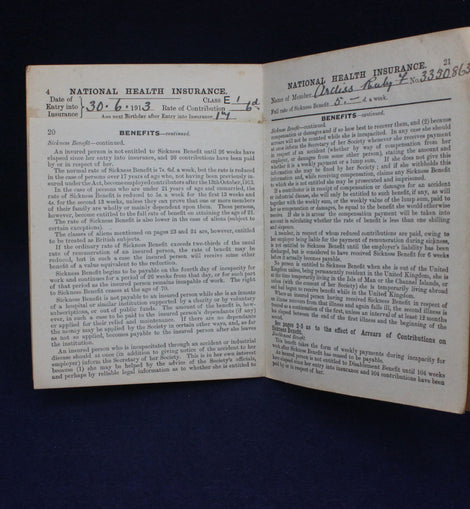 4 NATIONAL HEALTH INSURANCE.
Date of
Entry into
Insurance
30.6.1913
CLASS E 1
Rate of Contribution 6d
Age next Birthday after Entry into Insurance 17
20 BENEFITS—continued.
Sickness Benefit—continued.
An insured person is not entitled to Sickness Benefit until 26 weeks have
elapsed since her entry into insurance, and 26 contributions have been paid
by or in respect of her.
The normal rate of Sickness Benefit is 7s. 6d. a week, but the rate is reduced
in the case of persons over 17 years of age who, not having been previously in-
sured under the Act, become employed contributors after the 13th October, 1913.
In the case of persons who are under 21 years of age and unmarried, the
rate of Sickness Benefit is reduced to 5s. a week for the first 13 weeks and
4s. for the second 13 weeks, unless they can prove that one or more members
of their family are wholly or mainly dependent upon them. These persons,
however, become entitled to the full rate of benefit on attaining the age of 21.
The rate of Sickness Benefit is also lower in the case of aliens (subject to
certain exceptions).
The classes of aliens mentioned on pages 23 and 24 are, however, entitled
to be treated as British subjects.
If the ordinary rate of Sickness Benefit exceeds two-thirds of the usual
rate of remuneration of an insured person, the rate of benefit may be
reduced, but in such a case the insured person will receive some other
benefit of a value equivalent to the reduction.
Sickness Benefit begins to be payable on the fourth day of incapacity for
work and continues for a period of 26 weeks from that day, or for such part
of that period as the insured person remains incapable of work. The right
to Sickness Benefit ceases at the age of 70.
Sickness Benefit is not payable to an insured person while she is an inmate
of a hospital or similar institution supported by a charity or by voluntary
subscriptions, or out of public funds. The amount of the benefit is, how-
ever, in such a case to be paid to the insured person's dependants (if any)
or applied for their relief and maintenance. If there are no dependants
the money may be applied by the Society in certain other ways, and, so far
as not so applied, becomes payable to the insured person after she leaves
the institution.
An insured person who is incapacitated through an accident or industrial
disease should at once (in addition to giving notice of the accident to her
employer) inform the Secretary of her Society. This is in her own interest
because (1) she may be helped by the advice of the Society's officials,
and perhaps by reliable legal information as to whether she is entitled to
21
NATIONAL HEALTH INSURANCE.
Name of Member, Ruby F No. 3330863
Full rate of Sickness Benefit 5.— d. a week.
BENEFITS—continued.
Sickness Benefit—continued.
compensation or damages and if so how best to recover them, and (2) because
arrears will not be counted while she is incapacitated. In any case she should
at once inform the Secretary of her Society whenever she receives payment
in respect of an accident (whether by way of compensation from her
employer, or damages from some other person), stating the amount and
whether a weekly payment or a lump sum. If she does not give this
information she may be fined by her Society; and if she obtains benefit
from it, while receiving compensation, claims any Sickness Benefit
to which she is not entitled she may be prosecuted and imprisoned.
If a contributor is in receipt of compensation or damages for an accident
or industrial disease, she will only be entitled to such benefit, if any, as will,
together with the weekly sum, or the weekly value of the lump sum, paid to
her as compensation or damages, be equal to the benefit she would otherwise
receive. If she is in arrear the compensation payment will be taken into
account in calculating whether the rate of benefit is less than one shilling
and sixpence.
A member, in respect of whom reduced contributions are paid, owing to
her employer being liable for the payment of remuneration during sickness,
is not entitled to Sickness Benefit until the employer's liability has been
exhausted, and is deemed to have received Sickness Benefit for 6 weeks
before it actually becomes payable.
No person is entitled to Sickness Benefit when she is out of the United
Kingdom unless, being permanently resident in the United Kingdom, she is
at the time temporarily living in the Isle of Man or the Channel Islands, or
unless (with the consent of her Society) she is temporarily living abroad
and had begun to receive benefit while in the United Kingdom.
Where an insured person having received Sickness Benefit in respect of
an illness recovers from that illness and again falls ill, the second illness is
counted as a continuation of the first, unless an interval of at least 12 months
has elapsed between the end of the first illness and the beginning of the
second.
See pages 2-3 as to the effect of Arrears of Contributions on
Sickness Benefit.
Disablement Benefit.
This benefit takes the form of weekly payments during incapacity for
work after Sickness Benefit has ceased to be payable.
An insured person is not entitled to Disablement Benefit until 104 weeks
have elapsed since her entry into insurance and 104 contributions have been
paid by or in respect of her.